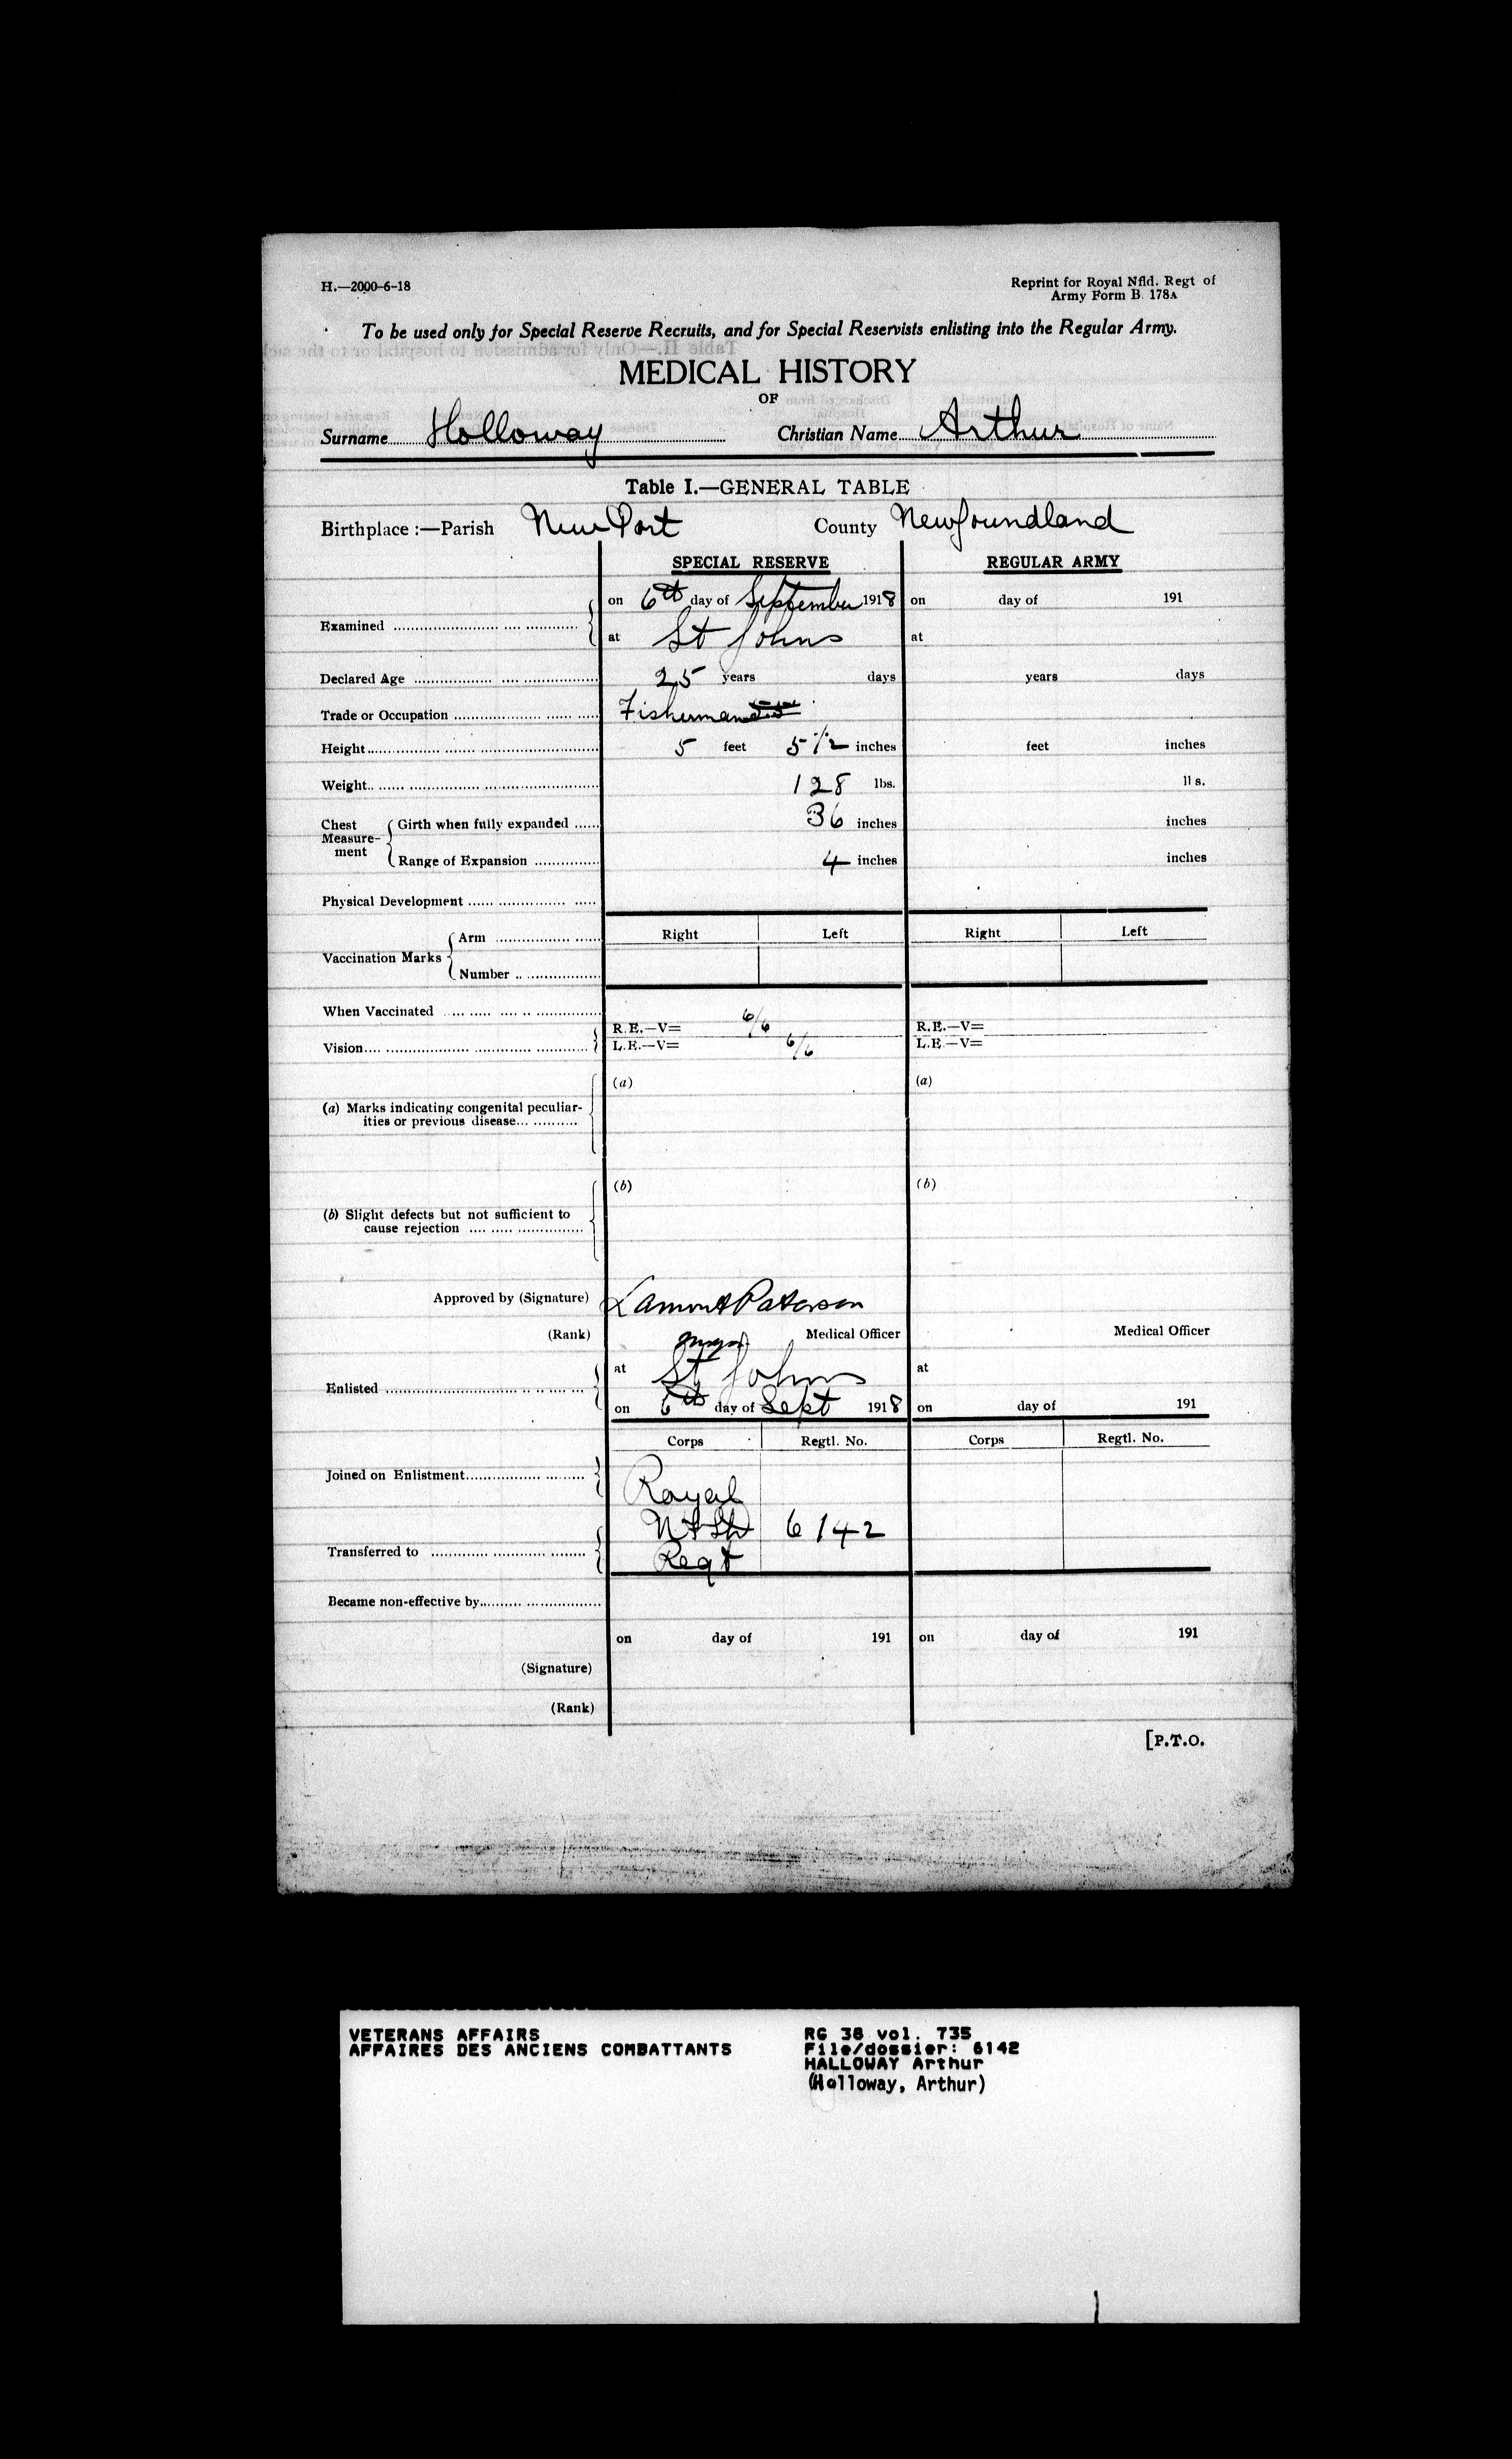 H.—2000-6-18
Reprint for Royal Nfld. Regt of
Army Form B 178A
To be used only for Special Reserve Recruits, and for Special Reservists enlisting into the Regular Army.
MEDICAL HISTORY
OF
Surname Holloway Christian Name Arthur
Table I.—GENERAL TABLE
Birthplace :—Parish New Port County Newfoundland
SPECIAL RESERVE REGULAR ARMY
on 6th day of September 1918 on day of 191
Examined
at St Johns at
Declared Age 25 years days years days
Trade or Occupation Fisherman
Height 5 feet 5 1/2 inches feet inches
Weight 128 lbs. lbs.
Chest Measurement Girth when fully expanded 36 inches inches
Range of Expansion 4 inches inches
Physical Development
Arm Right Left Right Left
Vaccination Marks
Number
When Vaccinated
R.E.—V= 6/6 R.E.—V=
Vision L.E.—V= 6/6 L.E.—V=
(a) (a)
(a) Marks indicating congenital peculiar-
ities or previous disease
(b) (b)
(b) Slight defects but not sufficient to
cause rejection
Approved by (Signature) Lamont Paterson
(Rank) Major Medical Officer Medical Officer
at St Johns at
Enlisted
on 6th day of Sept 1918 on day of 191
Corps Regtl. No. Corps Regtl. No.
Joined on Enlistment Royal
Nfld 6142
Transferred to Regt
Became non-effective by
on day of 191 on day of 191
(Signature)
(Rank)
[P.T.O.
VETERANS AFFAIRS RG 38 vol. 735
AFFAIRES DES ANCIENS COMBATTANTS File/dossier: 6142
HALLOWAY Arthur
(Holloway, Arthur)